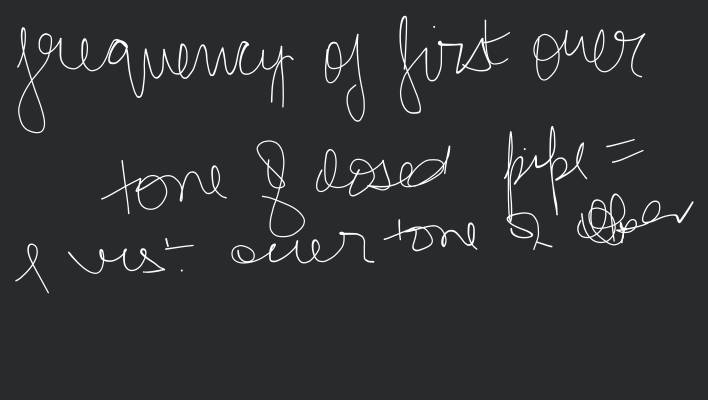 frequency of first over
tone of closed pipe =
first over tone of open